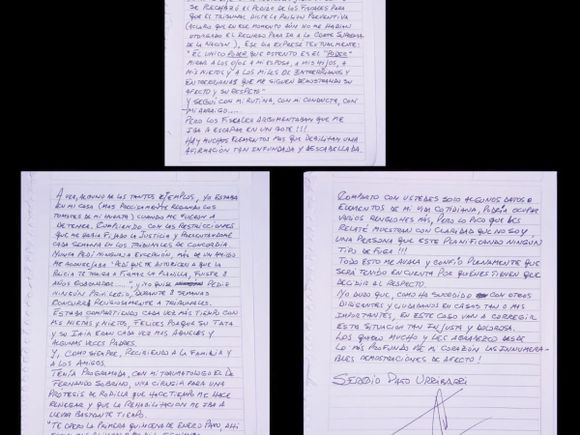 SE RECHAZÓ EL PEDIDO DE LOS FISCALES PARA
QUE EL TRIBUNAL DICTE LA PRISIÓN PREVENTIVA
(ACLARO QUE EN ESE MOMENTO AÚN NO ME HABÍAN
OTORGADO EL RECURSO PARA IR A LA CORTE SUPREMA
DE LA NACIÓN), ESE DÍA EXPRESÉ TEXTUALMENTE:
"EL ÚNICO PODER QUE OSTENTO ES EL "PODER"
MIRAR A LOS OJOS A MI ESPOSA, A MIS HIJOS, A
MIS NIETOS Y A LOS MILES DE ENTRERRIANOS Y
ENTRERRIANAS QUE ME SIGUEN DEMOSTRANDO SU
AFECTO Y SU RESPETO"
Y SEGUÍ CON MI RUTINA, CON MI CONDUCTA, CON
MI ARRAIGO.....
PERO LOS FISCALES ARGUMENTABAN QUE ME
IBA A ESCAPAR EN UN BOTE!!!
HAY MUCHOS ELEMENTOS MÁS QUE DEBILITAN UNA
AFIRMACIÓN TAN INFUNDADA Y DESCABELLADA.
A VER, ALGUNO DE LOS TANTOS EJEMPLOS, YO ESTABA
EN MI CASA (MÁS PRECISAMENTE REGANDO LOS
TOMATES DE MI HUERTA) CUANDO ME FUERON A
DETENER. CUMPLIENDO CON LAS RESTRICCIONES
QUE ME HABÍA FIJADO LA JUSTICIA Y PRESENTÁNDOME
CADA SEMANA EN LOS TRIBUNALES DE CONCORDIA
NUNCA PEDÍ NINGUNA EXCEPCIÓN, MÁS DE UN AMIGO
ME ACONSEJABA "PEDÍ QUE TE AUTORICEN A QUE LA
POLICÍA TE TRAIGA A FIRMAR LA PLANILLA, FUISTE 8
AÑOS GOBERNADOR....." Y YO QUISE PEDIR
NINGÚN PRIVILEGIO, DURANTE SEMANAS
CONCURRÍ RELIGIOSAMENTE A TRIBUNALES.
ESTABA COMPARTIENDO CADA VEZ MÁS TIEMPO CON
MIS NIETAS Y NIETOS, FELICES PORQUE SU TATA
Y SU IAIA ERAN CADA VEZ MÁS ABUELOS Y
ALGUNAS VECES PADRES.
Y, COMO SIEMPRE, RECIBIENDO A LA FAMILIA Y
A LOS AMIGOS.
TENÍA PROGRAMADA, CON MI TRAUMATÓLOGO EL DR
FERNANDO SOBRINO, UNA CIRUGÍA PARA UNA
PRÓTESIS DE RODILLA QUE HACE TIEMPO ME HACE
RENEGAR Y QUE LA REHABILITACIÓN ME IBA A
LLEVAR BASTANTE TIEMPO.
"TE OPERO LA PRIMERA QUINCENA DE ENERO PATO, AHÍ
COMPARTO CON USTEDES SOLO ALGUNOS DATOS E
ELEMENTOS DE MI VIDA COTIDIANA, PODRÍA OCUPAR
VARIOS RENGLONES MÁS, PERO LO POCO QUE LES
RELATÉ MUESTRAN CON CLARIDAD QUE NO SOY
UNA PERSONA QUE ESTÉ PLANIFICANDO NINGÚN
TIPO DE FUGA!!!
TODO ESTO ME AVALA Y CONFÍO PLENAMENTE QUE
SERÁ TENIDO EN CUENTA POR QUIENES TIENEN QUE
DECIDIR AL RESPECTO.
YO DIGO QUE, COMO HA SUCEDIDO CON OTROS
DIRIGENTES Y CIUDADANOS EN CASOS TAN O MÁS
IMPORTANTES, EN ESTE CASO VAN A CORREGIR
ESTA SITUACIÓN TAN INJUSTA Y DOLOROSA.
LOS QUIERO MUCHO Y LES AGRADEZCO DESDE
LO MÁS PROFUNDO DE MI CORAZÓN LAS INNUMERA-
BLES DEMOSTRACIONES DE AFECTO!
SERGIO PATO URRIBARRI